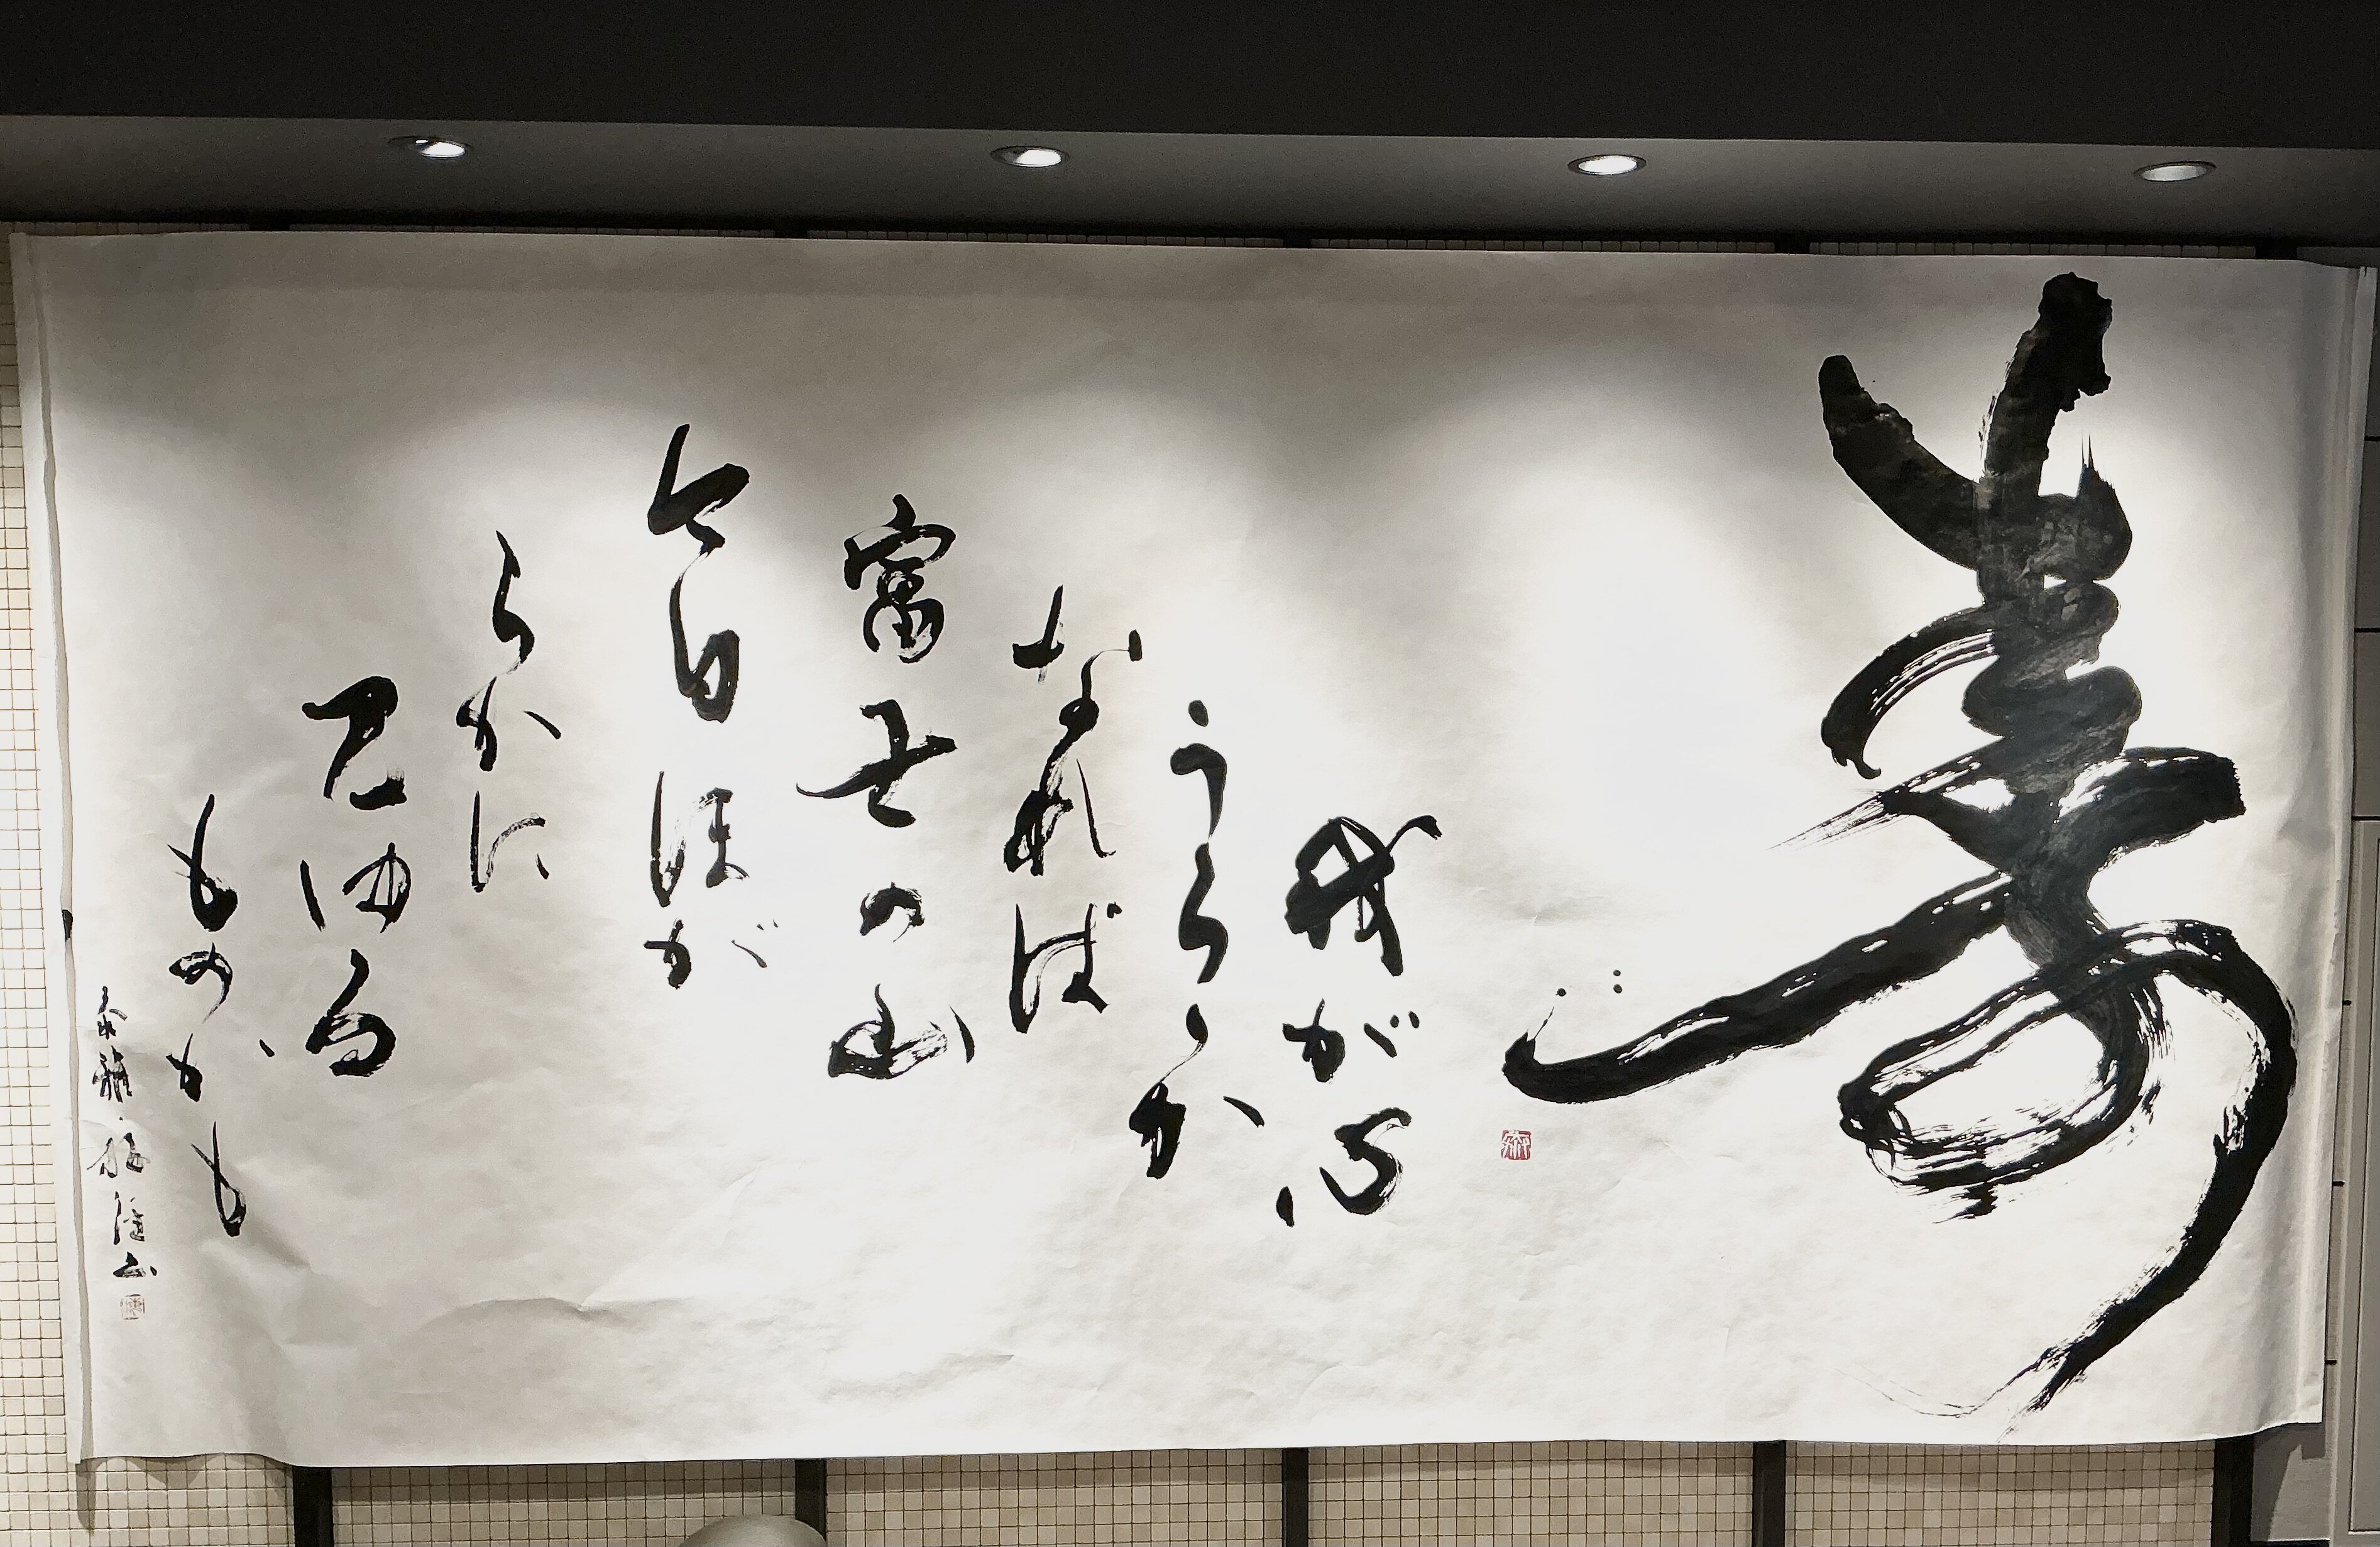 寿
我が心
うららか
なれば
富士の山
今日ほが
らかに
見ゆる
ものかも
泰雅